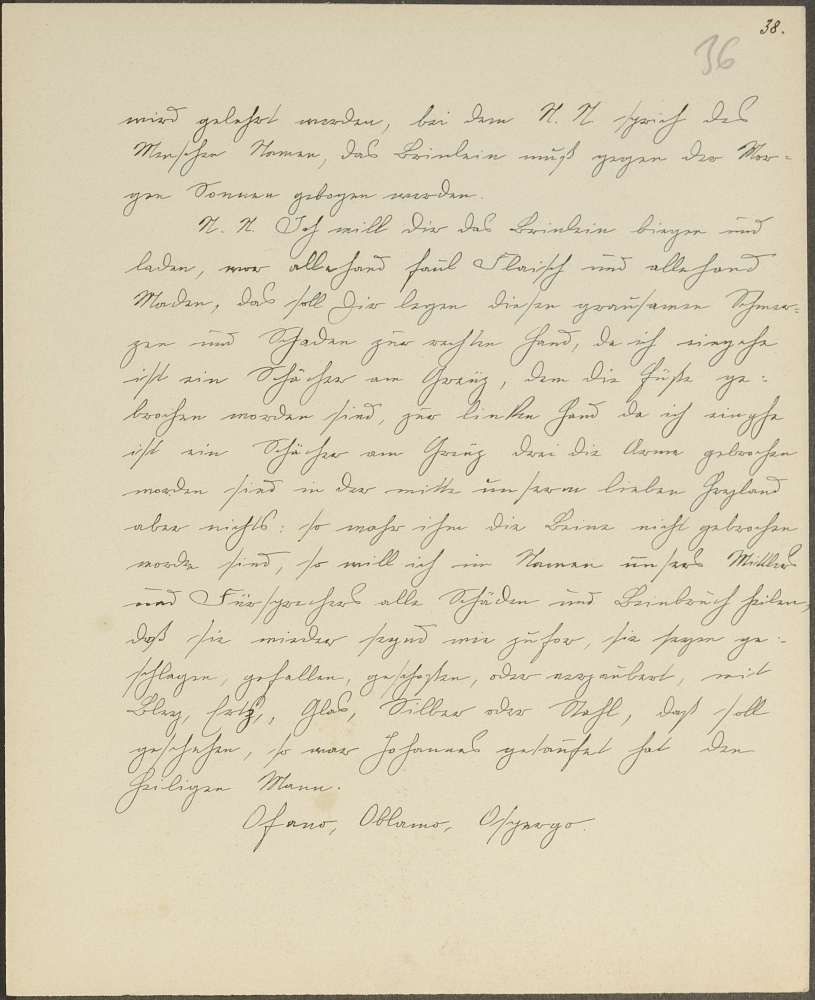 38.
36
wird gelehrt werden, bei dem N. N. sprich des
Menschen Namen, das Beinlein muß gegen der Mor-
gen Sonnen gebogen werden.
N. N. Ich will dir das Beinlein biegen und
laden, wor allerhand faul Flaisch und allehand
Maden, das soll Dir legen diesen grausamen Schmer-
zen und Schaden zur rechten Hand, da ich eingehe
ist ein Schächer am Chreuz, dem die Füße ge-
brochen worden sind, zur linken Hand da ich eingehe
ist ein Schächer am Chreuz drei die Arme gebrochen
worden sind in der mitte unserm lieben Heyland
aber nichts: so wahr ihm die Beine nicht gebrochen
worde sind, so will ich im Namen unsers Mittlers
und Fürsprechers alle Schäden und Beinbruch heilen,
daß sie wieder seynd wie zufor, sie seyen ge-
schlagen, gefallen, geschossen, oder verzaubert, mit
Bley, Ertz, Glas, Silber oder Stahl, daß soll
geschehen, so war Johannes getaufet hat den
heiligen Mann.
Ofano, Oblamo, Ospergo.